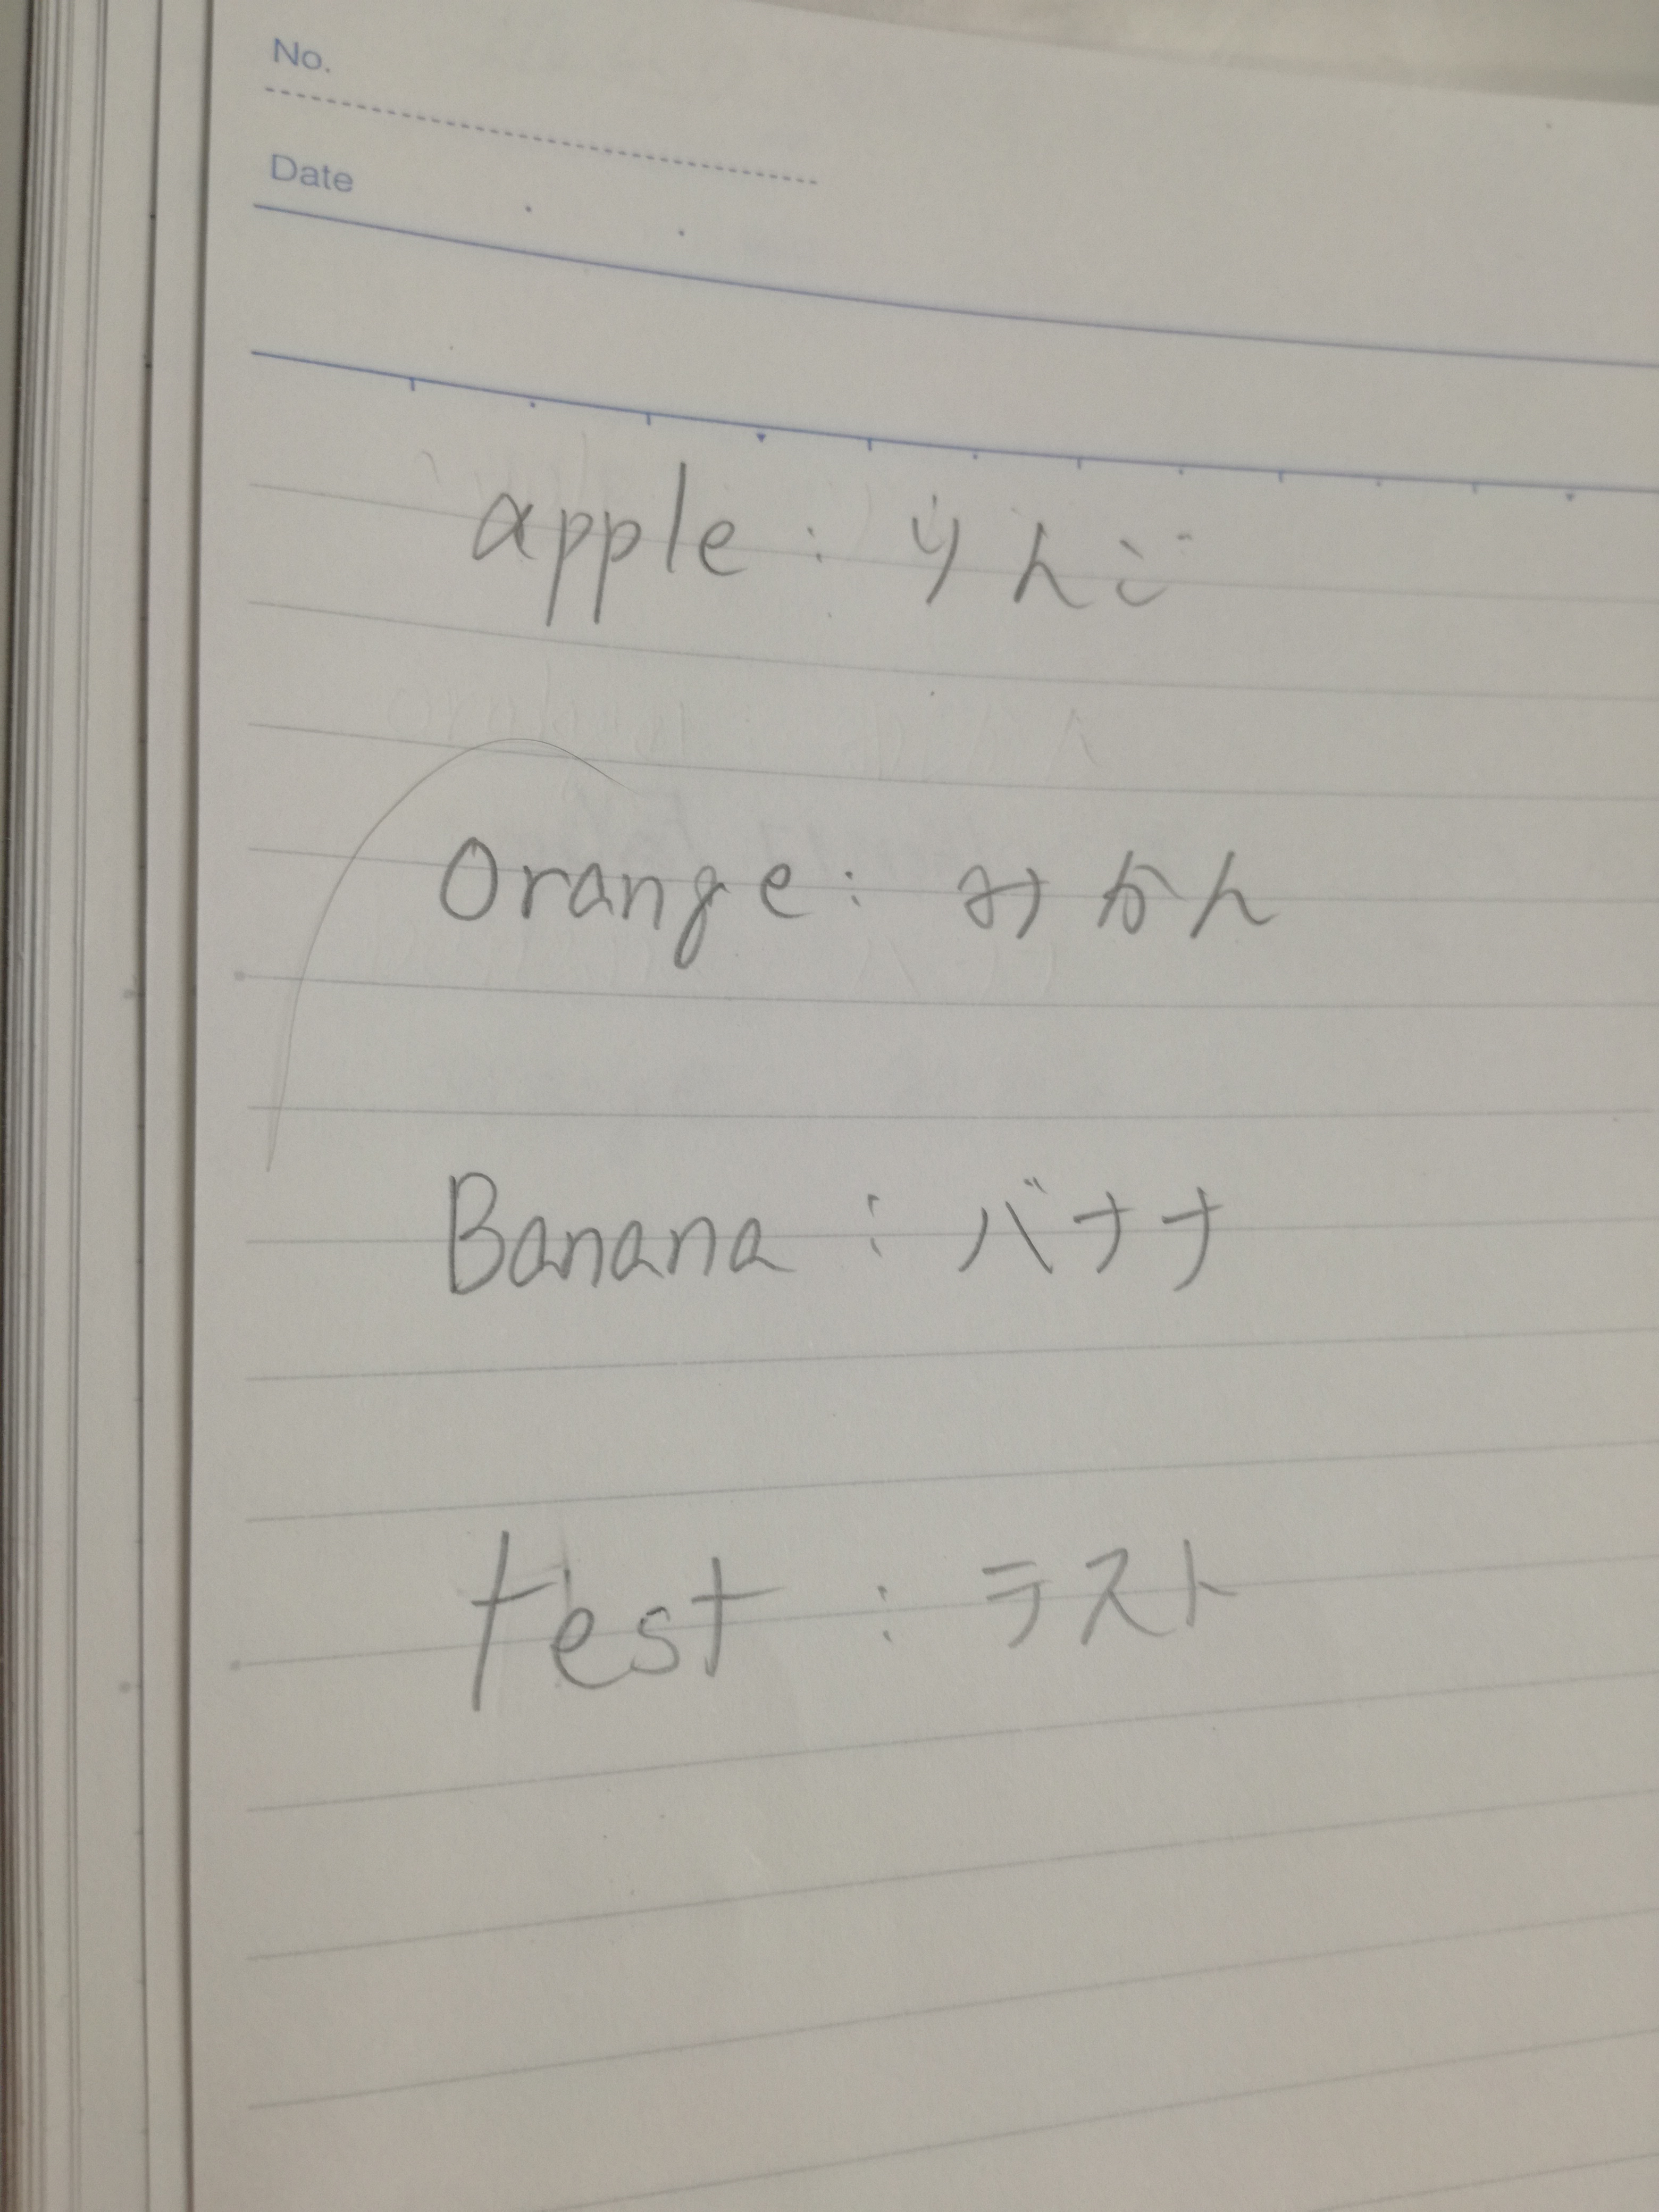 No.
Date
apple : りんご
Orange : みかん
Banana : バナナ
test : テスト